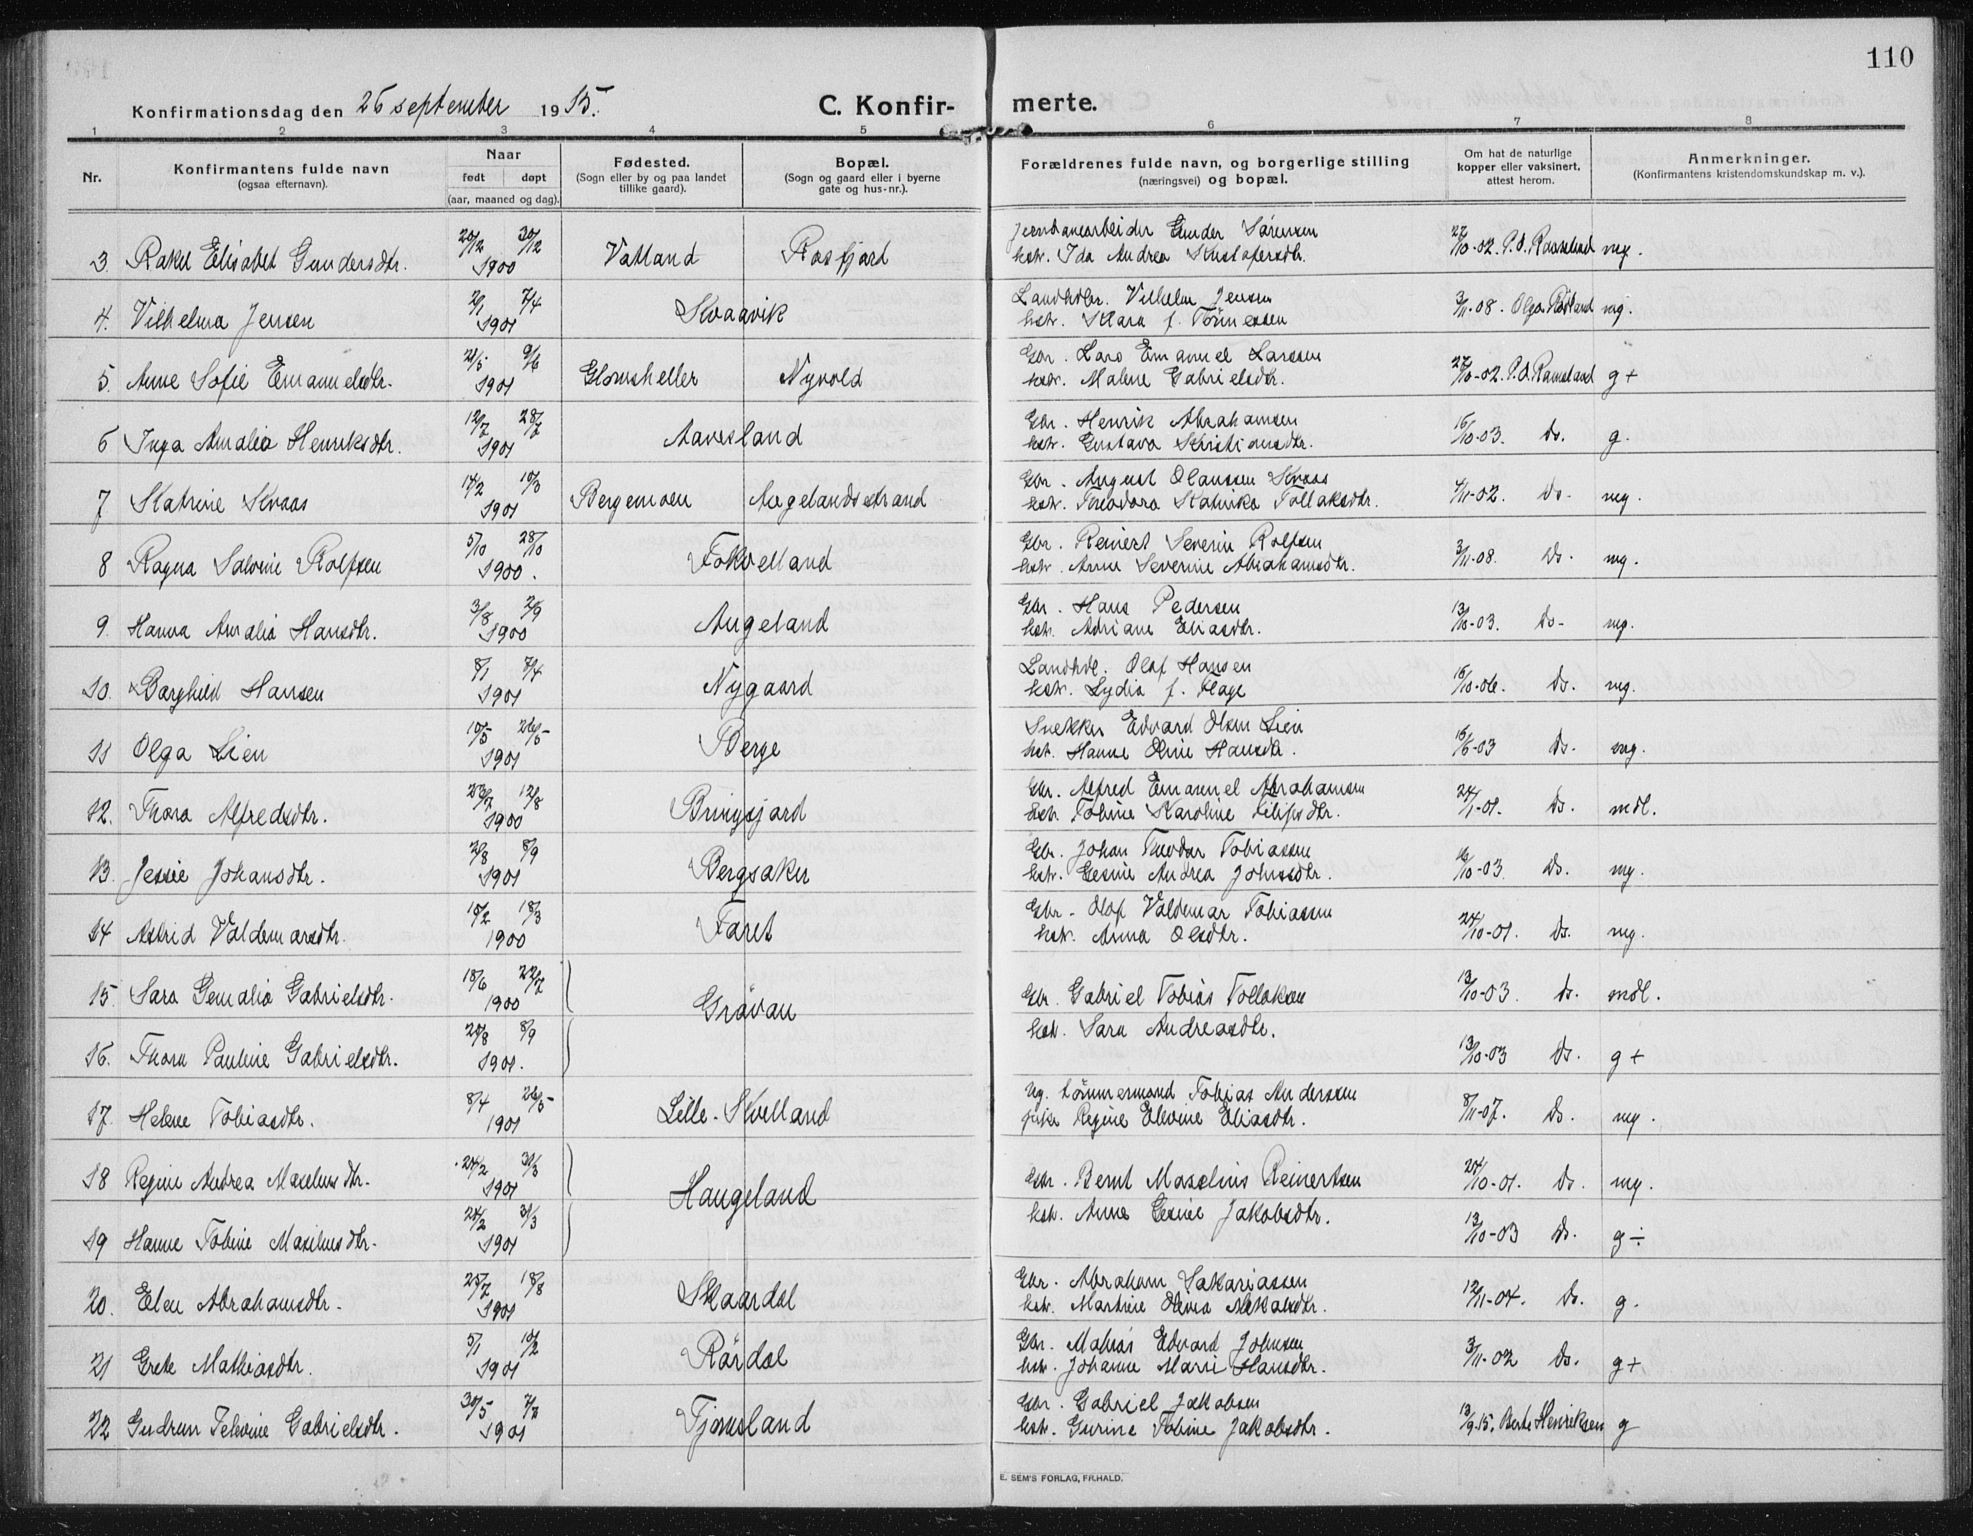 110
Konfirmationsdag den 26 september 1915.
C. Konfirmerte.
1 2 3 4 5 6 7 8
Nr.
Konfirmantens fulde navn
(ogsaa efternavn).
Naar
født døpt
(aar, maaned og dag).
Fødested.
(Sogn eller by og paa landet
tillike gaard).
Bopæl.
(Sogn og gaard eller i byerne
gate og hus-nr.).
Forældrenes fulde navn, og borgerlige stilling
(næringsvei) og bopæl.
Om hat de naturlige
kopper eller vaksinert,
attest herom.
Anmerkninger.
(Konfirmantens kristendomskundskap m. v.).
3. Rakel Elisabet Gundersdtr. 20/12 30/12 1900 Vatland Rosfjord
Jernbanearbeider Gunder Sørensen
hstr. Ida Andrea Kristofersdtr.
27/10-02. P.O. Ramsland mg.
4. Vilhelma Jensen 2/1 7/4 1901 Kvaavik
Landhdlr. Vilhelm Jensen
hstr. Klara f. Tönnessen
3/11-08. Olga Rödland mg.
5. Anne Sofie Emanuelsdtr. 21/5 9/6 1901 Glomsheller Nyvold
Gbr. Lars Emanuel Larssen
hstr. Malene Gabrielsdtr.
27/10-02. P.O. Ramsland g+
6 Inga Amalia Henriksdtr. 12/7 28/7 1901 Aavesland
Gbr. Henrik Abrahamsen
hstr. Gustava Kristiansdtr.
16/10-03. Ds. g.
7 Katrine Kvaas 14/2 10/3 1901 Bergemoen Augelandsstrand
Gbr. August Olaussen Kvaas
hstr. Theodora Katinka Tollaksdtr.
4/11-02. Ds. mg.
8 Ragna Salvine Rolfsen 5/10 28/10 1900. Fokselland
Gbr. Reinert Severin Rolfsen
hstr. Anne Severine Abrahamsdtr.
3/11-08. Ds. mg.
9. Hanna Amalia Hansdtr. 3/8 2/9 1900 Augeland
Gbr. Hans Pedersen
hstr. Adriane Eliasdtr.
13/10-03. Ds. mg.
10. Borghild Hansen 8/1 7/4 1901 Nygaard
Landhdl. Olaf Hansen
hstr. Lydia f. Flage
16/10-06. Ds. mg.
11 Olga Lien 10/5 26/5 1901 Berge
Snekker Edvard Olsen Lien
hstr. Hanne Oline Hansdtr.
Ds. mg.
12. Thora Alfredsdtr. 23/7 12/8 1900 Bringsjord
Gbr. Alfred Emanuel Abrahamsen
hstr. Tobine Karoline Filipsdtr.
24/1-01. Ds. mdl.
13. Jessie Johansdtr. 21/8 8/9 1901 Bergsaker
Gbr. Johan Theodor Tobiassen
hstr. Gesine Andrea Johnsdtr.
16/10-03. Ds. mg.
14 Astrid Valdemarsdtr. 15/2 18/3 1900 Faret
Gbr. Olaf Valdemar Tobiassen
hstr. Anna Olsdtr.
24/10-01. Ds. mg.
15. Sara Gemalia Gabrielsdtr. 18/6 22/7 1900
Grövan
Gbr. Gabriel Tobias Tollaksen
13/10-03. Ds. mdl.
hstr. Sara Andreasdtr.
16. Thora Pauline Gabrielsdtr. 20/8 8/9 1901.
13/10-03 Ds. g+
17. Helene Tobiasdtr. 8/4 26/5 1901 Lille-Kvelland
Ug. tömmermand Tobias Anderssen
pike Regine Elevine Eliasdtr.
8/11-07. Ds. mg.
18 Regine Andrea Maseliusdtr. 24/2 31/3 1901
Haugeland
Gbr. Bernt Maselius Reinertsen
24/10-01. Ds. mg.
hstr. Anne Gesine Jakobsdtr.
19 Hanne Tobine Maseliusdtr. 24/2 31/3 1901
13/10-03 Ds. g÷
20. Elen Abrahamsdtr. 25/7 18/8 1901 Skaardal
Gbr. Abraham Sakariassen
hstr. Martine Olevia
12/11-04. Ds. g.
21 Grete Mathiasdtr. 5/1 10/2 1901 Rördal
Gbr. Matias Edvard Johnsen
hstr. Johanne Marie Hansdtr.
3/11-02 Ds. g+
22 Gudrun Televine Gabrielsdtr. 30/5 1901 Tjomsland
Gbr. Gabriel Jakobsen
hstr. Gurine Tobine Jakobsdtr.
13/9-15. Berte Henriksen g
E. SEM'S FORLAG, FR.HALD.